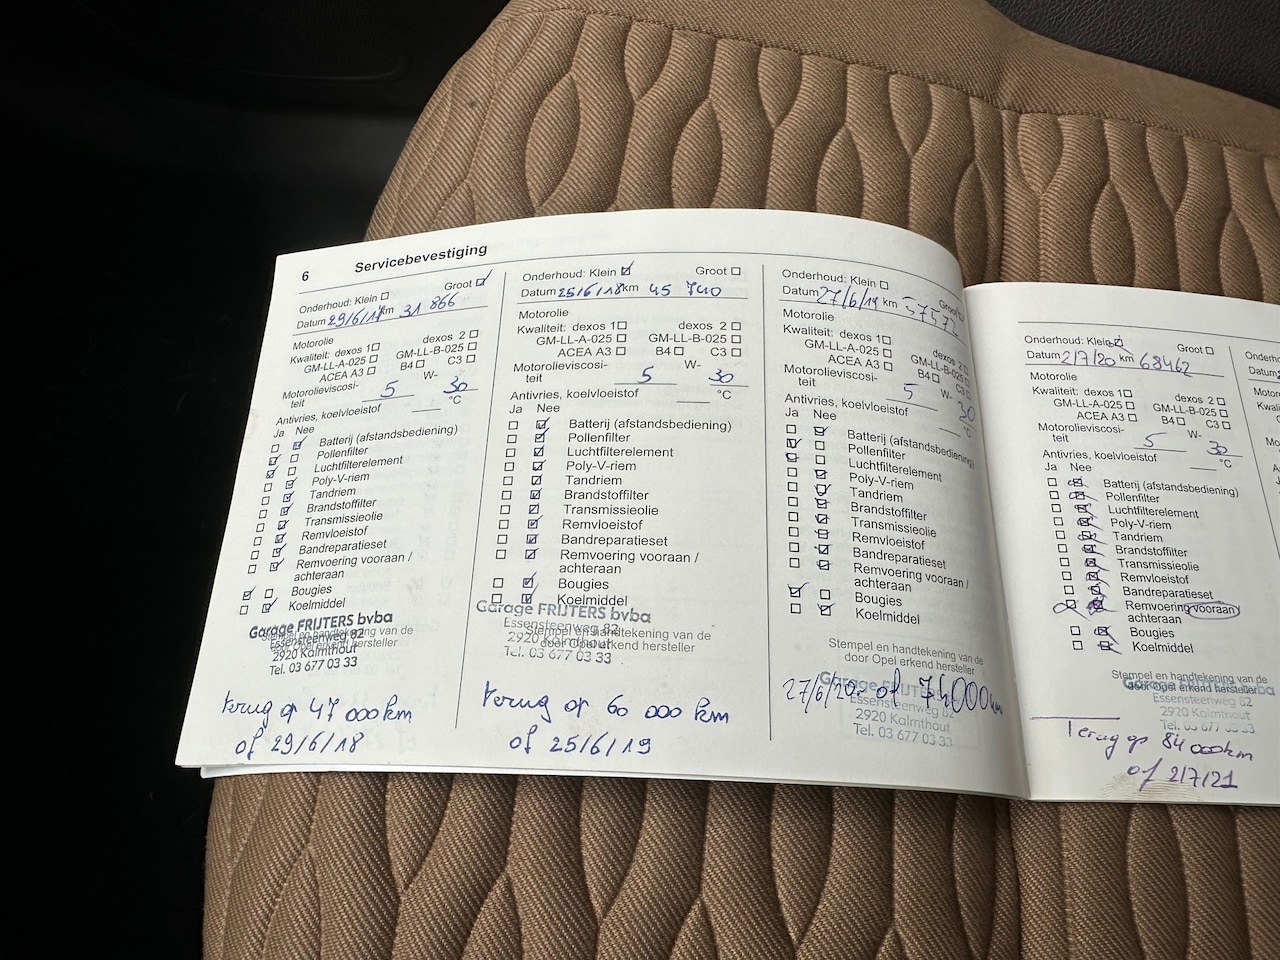 6 Servicebevestiging
Onderhoud: Klein Groot
Datum 29/6/17 km 31 866
Motorolie
Kwaliteit: dexos 1 dexos 2
GM-LL-A-025 GM-LL-B-025
ACEA A3 B4 C3
Motorolieviscosi- W-
teit 5 30
Antivries, koelvloeistof °C
Ja Nee
Batterij (afstandsbediening)
Pollenfilter
Luchtfilterelement
Poly-V-riem
Tandriem
Brandstoffilter
Transmissieolie
Remvloeistof
Bandreparatieset
Remvoering vooraan /
achteraan
Bougies
Koelmiddel
Garage FRIJTERS bvba
Essensteenweg 82
Stempel en handtekening van de
door Opel erkend hersteller
2920 Kalmthout
Tel. 03 677 03 33
terug op 47 000 km
of 29/6/18
Onderhoud: Klein Groot
Datum 25/6/18 km 45 740
Motorolie
Kwaliteit: dexos 1 dexos 2
GM-LL-A-025 GM-LL-B-025
ACEA A3 B4 C3
Motorolieviscosi- W-
teit 5 30
Antivries, koelvloeistof °C
Ja Nee
Batterij (afstandsbediening)
Pollenfilter
Luchtfilterelement
Poly-V-riem
Tandriem
Brandstoffilter
Transmissieolie
Remvloeistof
Bandreparatieset
Remvoering vooraan /
achteraan
Bougies
Koelmiddel
Garage FRIJTERS bvba
Essensteenweg 82
Stempel en handtekening van de
2920 Kalmthout
door Opel erkend hersteller
Tel. 03 677 03 33
terug op 60 000 km
of 25/6/19
Onderhoud: Klein Groot
Datum 27/6/19 km
Motorolie
Kwaliteit: dexos 1 dexos 2
GM-LL-A-025 GM-LL-B-025
ACEA A3 B4 C3
Motorolieviscosi- W-
teit 5 30
Antivries, koelvloeistof °C
Ja Nee
Batterij (afstandsbediening)
Pollenfilter
Luchtfilterelement
Poly-V-riem
Tandriem
Brandstoffilter
Transmissieolie
Remvloeistof
Bandreparatieset
Remvoering vooraan /
achteraan
Bougies
Koelmiddel
Stempel en handtekening van de
door Opel erkend hersteller
Garage FRIJTERS
27/6/20 of 74000 km
Essensteenweg 82
2920 Kalmthout
Tel. 03 677 03 33
Onderhoud: Klein Groot
Datum 2/7/20 km 68462
Motorolie
Kwaliteit: dexos 1 dexos 2
GM-LL-A-025 GM-LL-B-025
ACEA A3 B4 C3
Motorolieviscosi- W-
teit 5 30
Antivries, koelvloeistof °C
Ja Nee
Batterij (afstandsbediening)
Pollenfilter
Luchtfilterelement
Poly-V-riem
Tandriem
Brandstoffilter
Transmissieolie
Remvloeistof
Bandreparatieset
Remvoering vooraan
achteraan
Bougies
Koelmiddel
Stempel en handtekening van de
door Opel erkend hersteller
Garage FRIJTERS bvba
Essensteenweg 82
2920 Kalmthout
Tel. 03 677 03 33
Terug op 84 000km
of 2/7/21